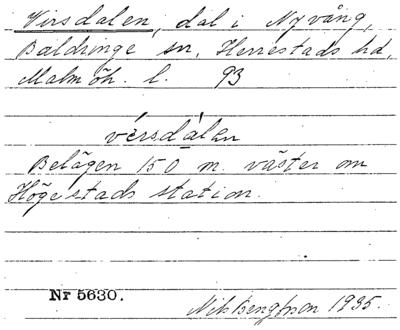 Virsdalen, dal i Nyvång,
Baldringe sn, Herrestads hd,
Malmöh. l. 93
vérsdàlen
Belägen 150 m. väster om
Högestads station.
Nr 5630.
Nils Bengtsson 1935.